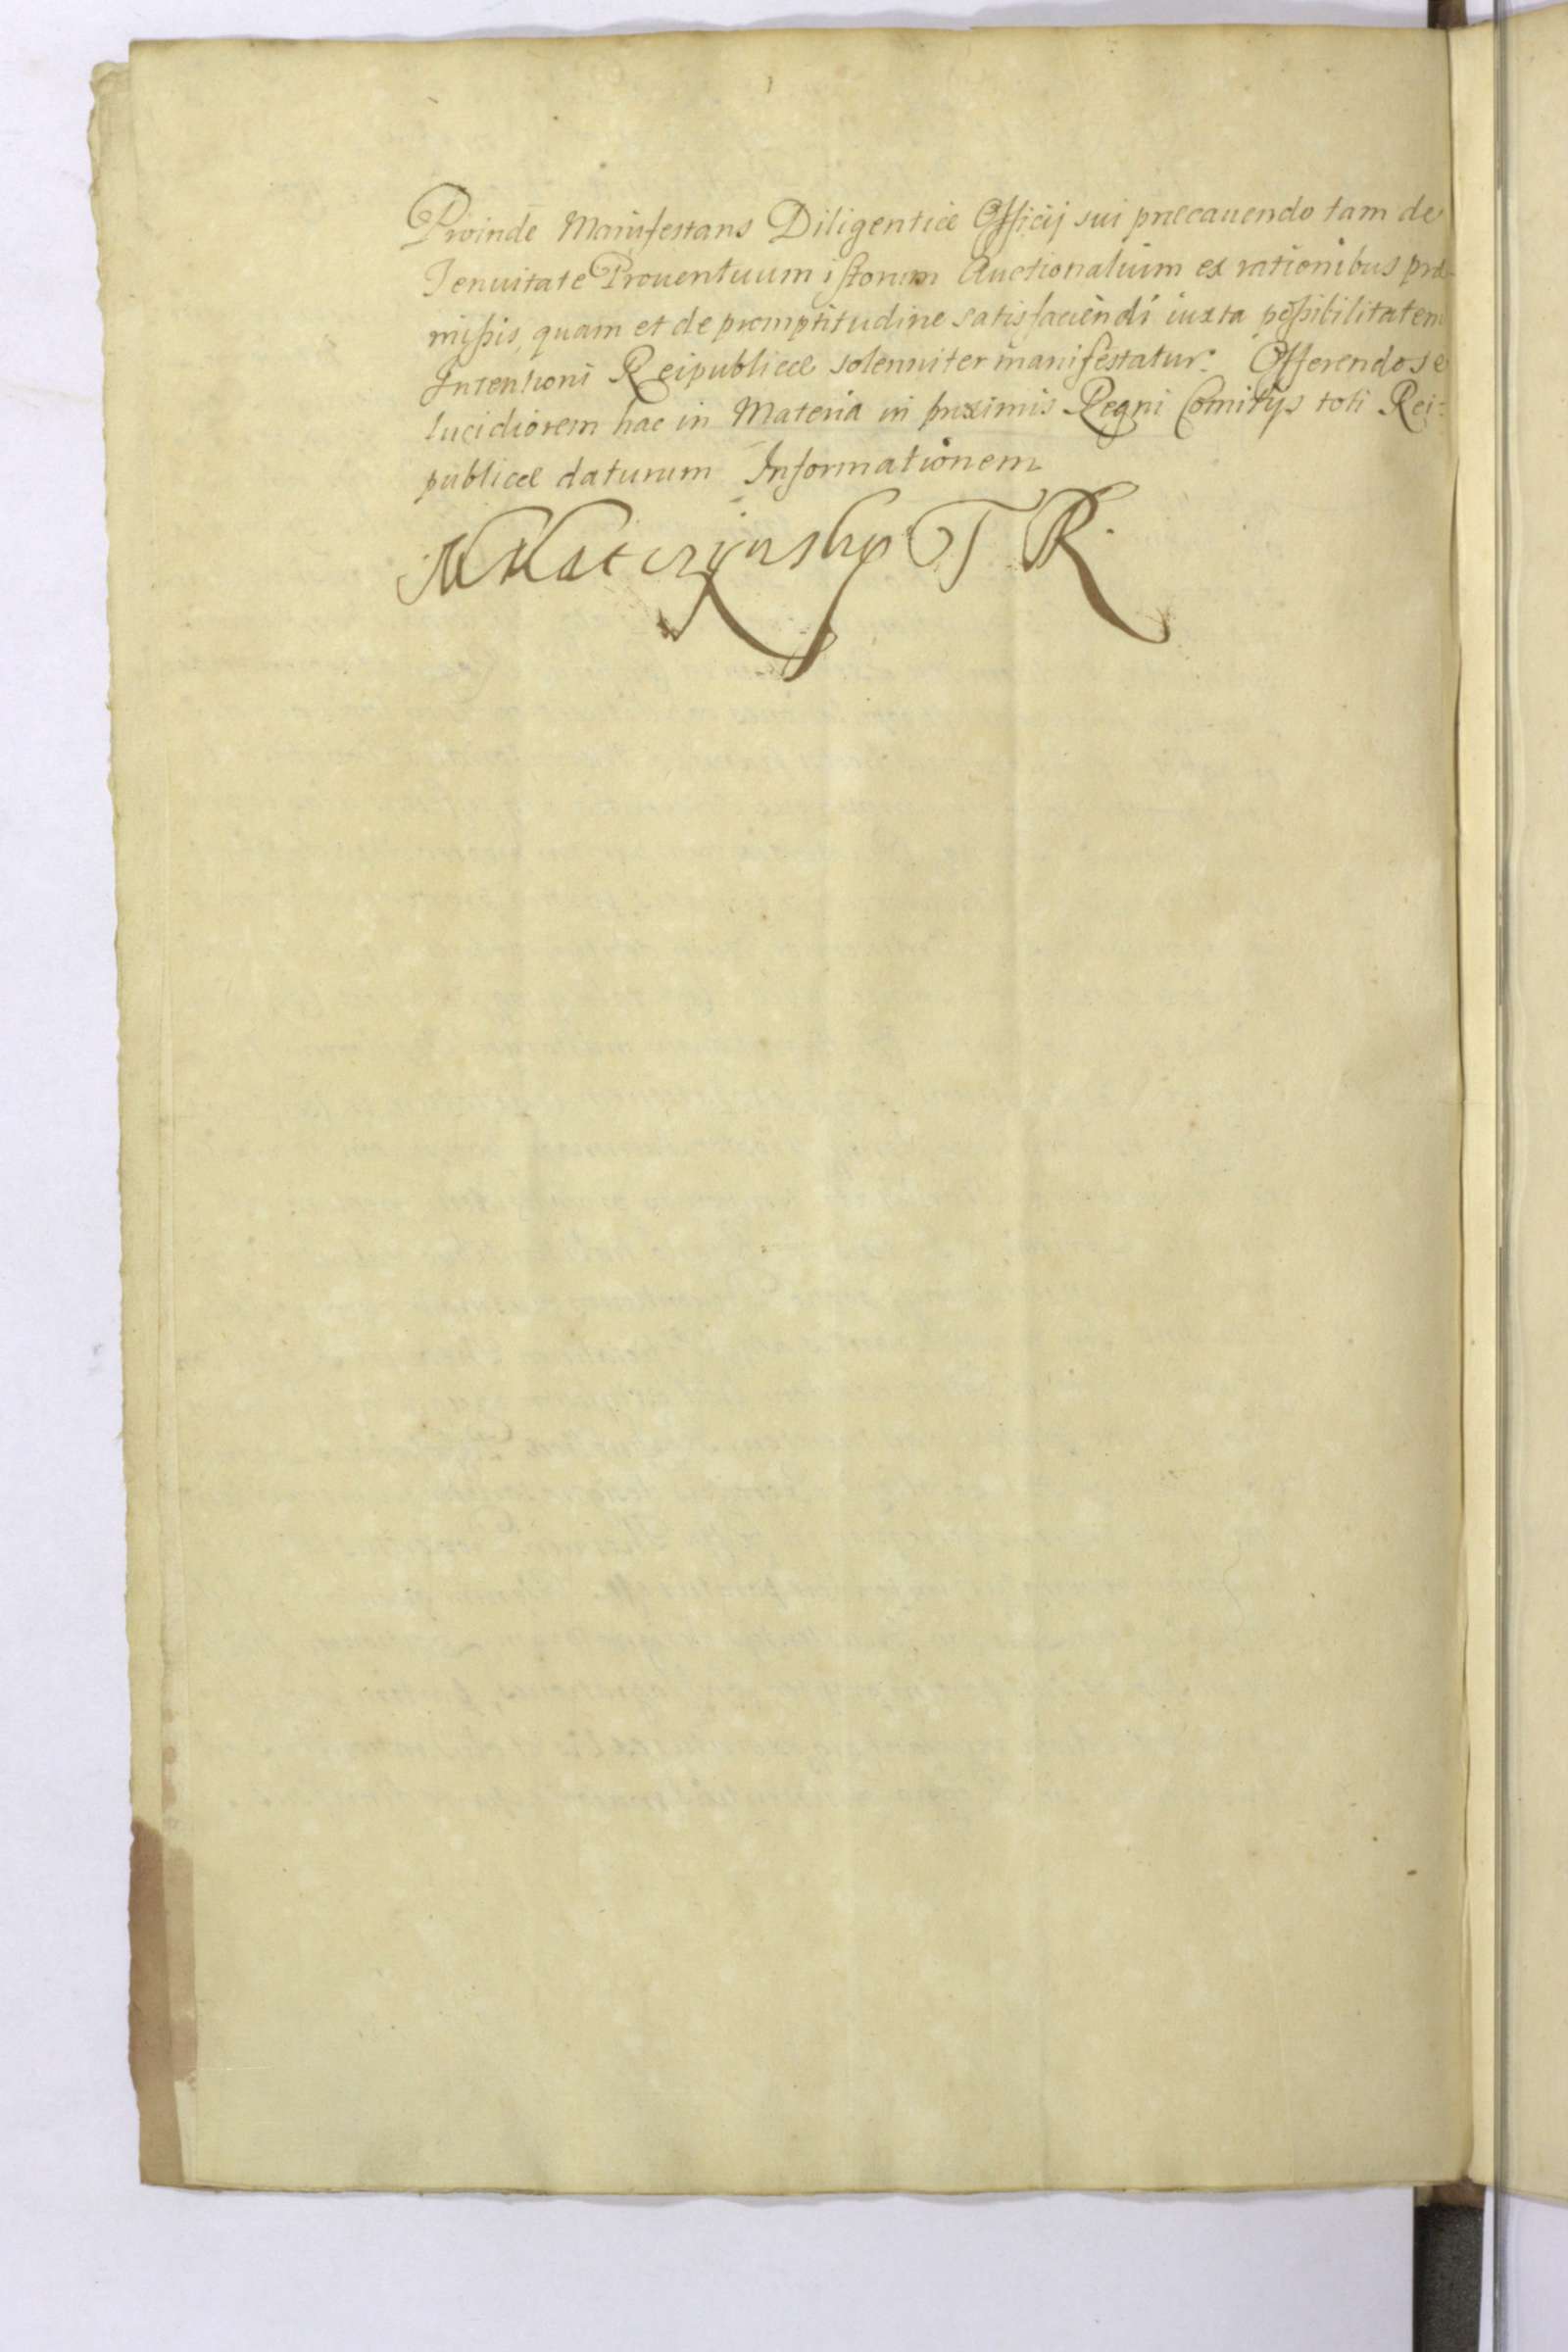 Proinde Manifestans Diligentiæ Officij sui præcauendo tam de
Tenuitate Prouentuum istorum Auctionalium ex rationibus præ-
mißis, quam et de promptitudine satisfaciendi iuxta poßibilitatem
Intentioni Reipublicæ solenniter manifestatur. Offerendo se
lucidiorem hac in Materia in proximis Regni Comitijs toti Rei=
publicæ daturum Informationem
MMatczynsky T R.